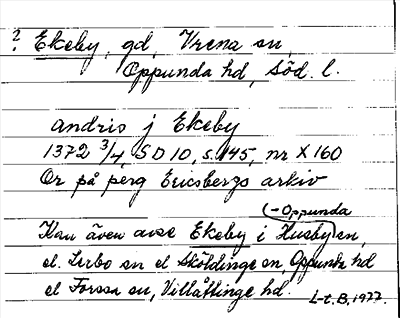 ? Ekeby, gd, Vrena sn,
Oppunda hd, Söd. l.
Andris j Ekeby
1372 3/4, SD 10, s. 145, nr X160
Or på perg Ericsbergs arkiv
(-Oppunda
Kan även avse Ekeby i Husby sn,
el. Lerbo sn el Sköldinge sn, Oppunda hd
el Forssa sn, Villåttinge hd.
L-t. B. 1977.